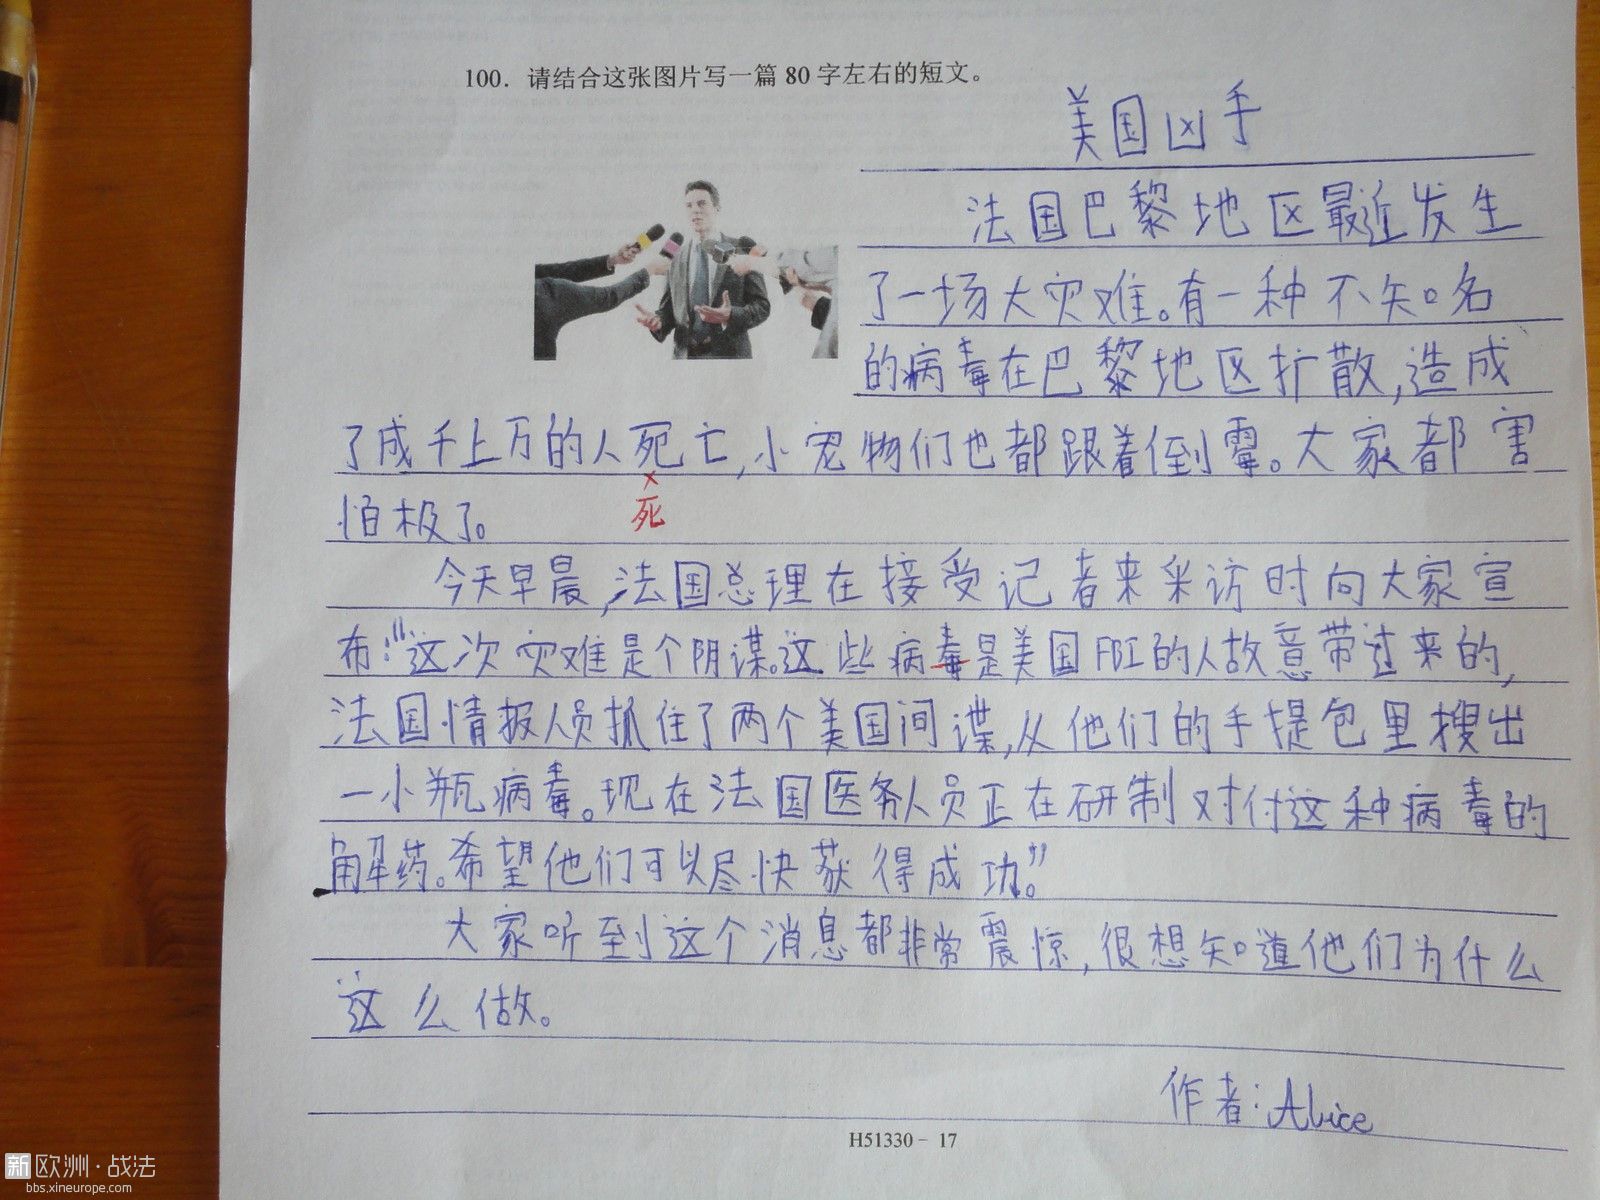 100. 请结合这张图片写一篇 80 字左右的短文。
美国凶手
法国巴黎地区最近发生
了一场大灾难。有一种不知名
的病毒在巴黎地区扩散,造成
了成千上万的人死亡,小宠物们也都跟着倒霉。大家都害
怕极了。
死
今天早晨,法国总理在接受记者来采访时向大家宣
布:“这次灾难是个阴谋。这些病毒是美国FBI的人故意带过来的,
法国情报人员抓住了两个美国间谍,从他们的手提包里搜出
一小瓶病毒。现在法国医务人员正在研制对付这种病毒的
解药。希望他们可以尽快获得成功。”
大家听到这个消息都非常震惊,很想知道他们为什么
这么做。
作者:Alice
H51330 - 17
新欧洲·战法
bbs.xineurope.com